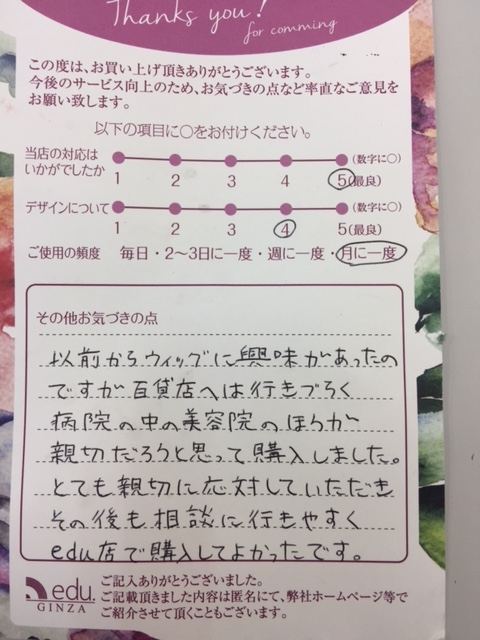 Thanks you!
for comming
この度は、お買い上げ頂きありがとうございます。
今後のサービス向上のため、お気づきの点など率直なご意見を
お願い致します。
以下の項目に○をお付けください。
当店の対応は
いかがでしたか
1 2 3 4 5(最良) (数字に○)
デザインについて
1 2 3 4 5(最良) (数字に○)
ご使用の頻度 毎日・2〜3日に一度・週に一度・月に一度
その他お気づきの点
以前からウィッグに興味があったの
ですが百貨店へは行きづらく
病院の中の美容院のほうが
親切だろうと思って購入しました。
とても親切に応対していただき
その後も相談に行きやすく
edu店で購入してよかったです。
edu.
GINZA
ご記入ありがとうございました。
ご記載頂きました内容は匿名にて、弊社ホームページ等で
ご紹介させて頂くこともございます。